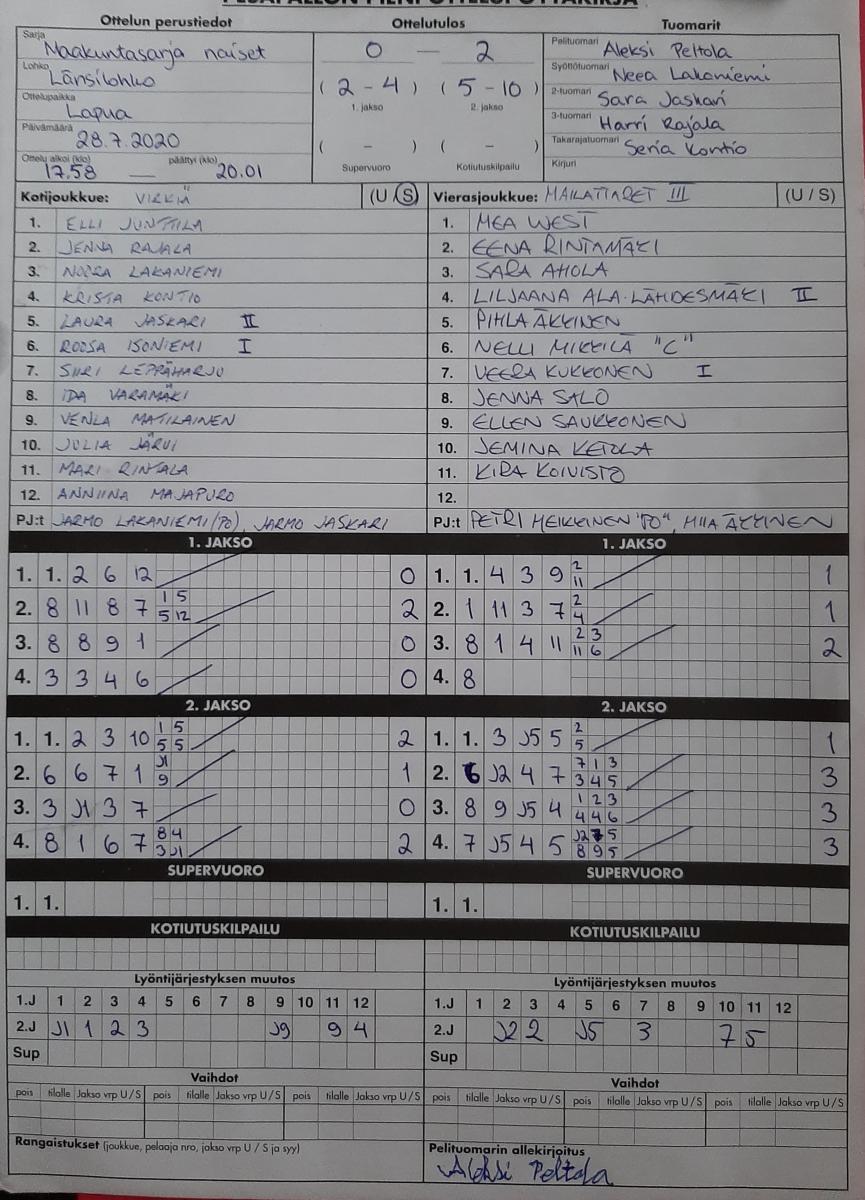 PESÄPALLON PIENPÖYTÄKIRJA
Ottelun perustiedot Ottelutulos Tuomarit
Sarja Maakuntasarja naiset 0 — 2 Pelituomari Aleksi Peltola
Lohko Länsilohko ( 2 - 4 ) ( 5 - 10 ) Syöttötuomari Neea Lakaniemi
Ottelupaikka Lapua 1. jakso 2. jakso 2-tuomari Sara Jaskari
Päivämäärä 28.7.2020 ( - ) ( - ) 3-tuomari Harri Rajala
Ottelu alkoi (klo) 17.58 — päättyi (klo) 20.01 Supervuoro Kotiutuskilpailu Takarajatuomari Senja Kontio
Kirjuri
Kotijoukkue: VIRKIÄ (U / S) Vierasjoukkue: MAILATTARET III (U / S)
1. ELLI JUNTTILA 1. MEA WEST
2. JENNA RAJALA 2. EENA RINTAMÄKI
3. NOORA LAKANIEMI 3. SARA AHOLA
4. KRISTA KONTIO 4. LILJAANA ALA-LÄHDESMÄKI II
5. LAURA JASKARI II 5. PIHLA ÄKKINEN
6. ROOSA ISONIEMI I 6. NELLI MIKKILÄ "C"
7. SIIRI LEPPÄHARJU 7. VEERA KUKKONEN I
8. IDA VARAMÄKI 8. JENNA SALO
9. VENLA MATILAINEN 9. ELLEN SAUKKONEN
10. JULIA JÄRVI 10. JEMINA KETOLA
11. MARI RINTALA 11. KIRA KOIVISTO
12. ANNIINA MAJAPURO 12.
PJ:t JARMO LAKANIEMI (PO), JARMO JASKARI PJ:t PETRI HEIKKINEN "PO", MIIA ÄKKINEN
1. JAKSO 1. JAKSO
1. 1. 2 6 12 0 1. 1. 4 3 9 2 11 1
2. 8 11 8 7 1 5 5 12 2 2. 1 11 3 7 2 4 1
3. 8 8 9 1 0 3. 8 1 4 11 2 3 11 6 2
4. 3 3 4 6 0 4. 8
2. JAKSO 2. JAKSO
1. 1. 2 3 10 1 5 5 5 2 1. 1. 3 J5 5 2 5 1
2. 6 6 7 1 J1 9 1 2. 6 J2 4 7 7 1 3 3 4 5 3
3. 3 J1 3 7 0 3. 8 9 J5 4 1 2 3 4 4 6 3
4. 8 1 6 7 8 4 3 J1 2 4. 7 J5 4 5 J2 7 5 8 9 5 3
SUPERVUORO SUPERVUORO
1. 1. 1. 1.
KOTIUTUSKILPAILU KOTIUTUSKILPAILU
Lyöntijärjestyksen muutos Lyöntijärjestyksen muutos
1.J 1 2 3 4 5 6 7 8 9 10 11 12 1.J 1 2 3 4 5 6 7 8 9 10 11 12
2.J J1 1 2 3 J9 9 4 2.J J2 2 J5 3 7 5
Sup Sup
Vaihdot Vaihdot
pois tilalle Jakso vrp U/S pois tilalle Jakso vrp U/S pois tilalle Jakso vrp U/S pois tilalle Jakso vrp U/S pois tilalle Jakso vrp U/S pois tilalle Jakso vrp U/S
Rangaistukset (joukkue, pelaaja nro, jakso vrp U / S ja syy) Pelituomarin allekirjoitus
Aleksi Peltola